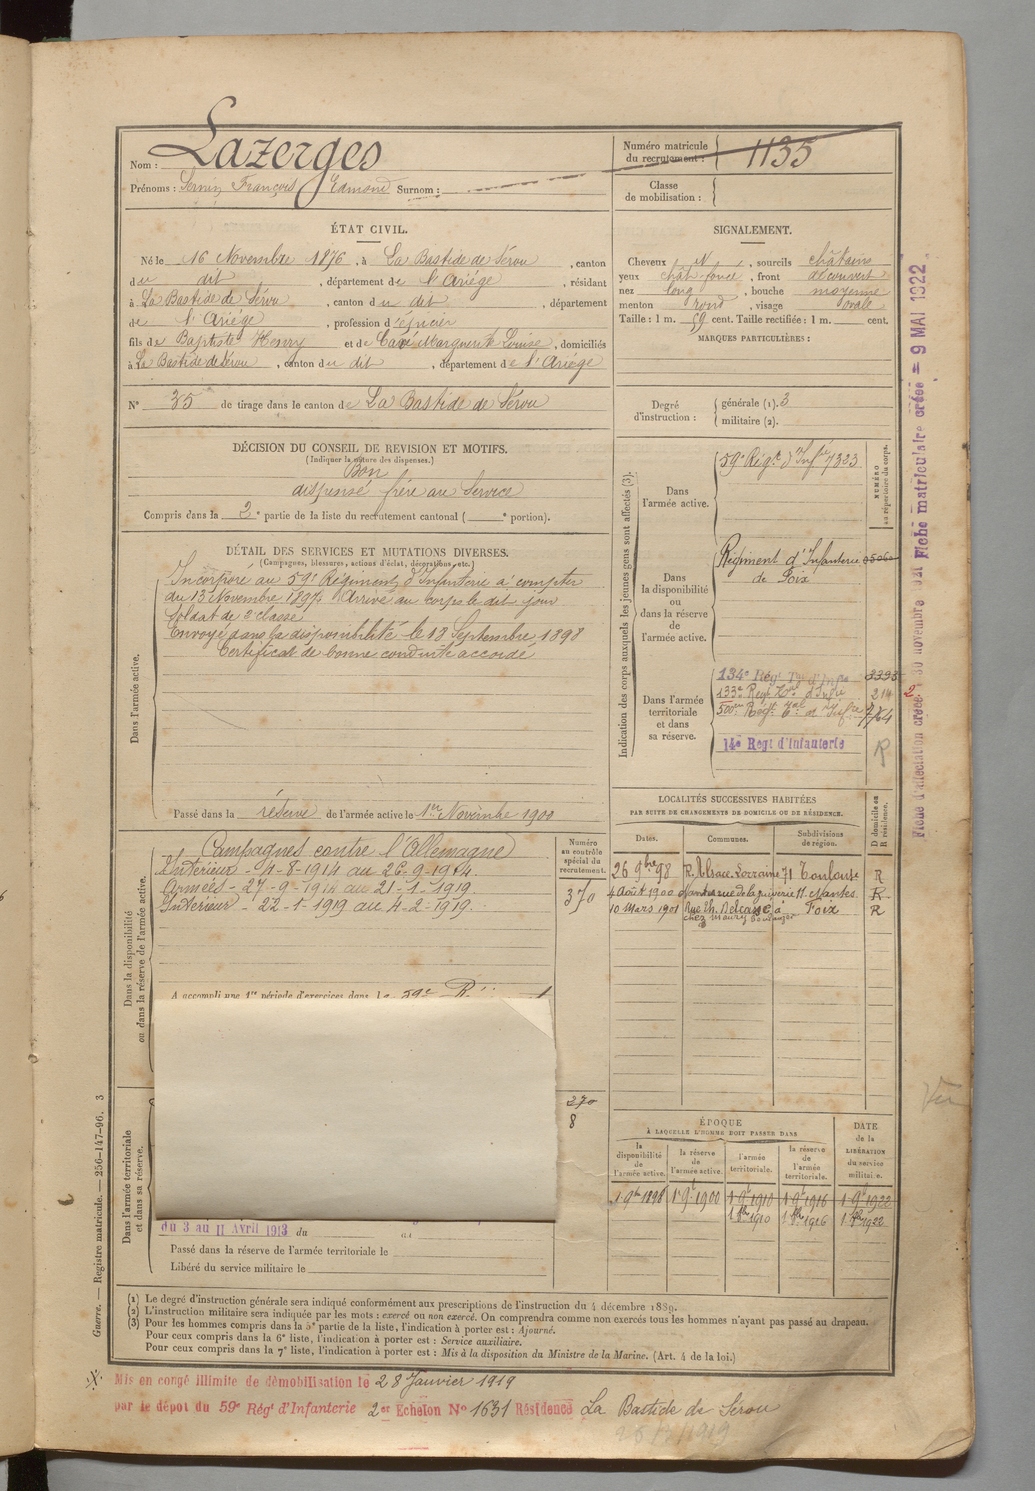 Nom : Lazerges
Prénoms : Sernin François Edmond Surnom :
Numéro matricule du recrutement : 1135
Classe de mobilisation :
ÉTAT CIVIL.
Né le 16 Novembre 1876, à La Bastide de Sérou, canton
du dit, département de l'Ariége, résidant
à La Bastide de Sérou, canton du dit, département
de l'Ariége, profession d'épicier
fils de Baptiste Henry et de Marguerite Louise, domiciliés
à La Bastide de Sérou, canton du dit, département de l'Ariége
N° 35 de tirage dans le canton de La Bastide de Sérou
SIGNALEMENT.
Cheveux N, sourcils châtains
yeux chât foncé, front découvert
nez long, bouche moyenne
menton rond, visage ovale
Taille : 1 m. 59 cent. Taille rectifiée : 1 m. cent.
MARQUES PARTICULIÈRES :
Degré d'instruction : générale (1). 3
militaire (2).
DÉCISION DU CONSEIL DE REVISION ET MOTIFS.
(Indiquer la nature des dispenses.)
Bon
dispensé frère au Service
Compris dans la 2e partie de la liste du recrutement cantonal ( e portion).
DÉTAIL DES SERVICES ET MUTATIONS DIVERSES.
(Campagnes, blessures, actions d'éclat, décorations, etc.)
Dans l'armée active.
Incorporé au 59e Régiment d'Infanterie à compter
du 13 Novembre 1897 Arrivé au corps le dit jour
Soldat de 2e classe
Envoyé dans la disponibilité le 18 Septembre 1898
Certificat de bonne conduite accordé
Passé dans la réserve de l'armée active le 1er Novembre 1900
Indication des corps auxquels les jeunes gens sont affectés (3).
NUMÉRO au répertoire du corps.
Dans l'armée active.
59e Régt d'Infie 7323
Dans la disponibilité ou dans la réserve de l'armée active.
Régiment d'Infanterie 05060
de Foix
Dans l'armée territoriale et dans sa réserve.
134e Régt Tal d'Infie 3395
133e Régt Tal d'Infie 214
500e Régt Tal d'Infie 764
14e Regt d'Infanterie R
LOCALITÉS SUCCESSIVES HABITÉES
PAR SUITE DE CHANGEMENTS DE DOMICILE OU DE RÉSIDENCE.
Dates. Communes. Subdivisions de région. D domicile ou R résidence.
26 9bre 98 R. Alsace Lorraine 71 Toulouse R
4 Août 1900 Nantes rue de la 11. Nantes. R
10 Mars 1901 Rue Th. Delcassé à Foix R
chez Maury boulanger
Dans la disponibilité ou dans la réserve de l'armée active.
Numéro au contrôle spécial du recrutement.
370
Campagnes contre l'Allemagne
Intérieur - 4-8-1914 au 26-9-1914.
Armées - 27-9-1914 au 21-1-1919.
Intérieur - 22-1-1919 au 4-2-1919.
A accompli une 1re période d'exercices dans le 59e R.
270
8
Dans l'armée territoriale et dans sa réserve.
du 3 au 11 Avril 1913 du au
Passé dans la réserve de l'armée territoriale le
Libéré du service militaire le
ÉPOQUE
À LAQUELLE L'HOMME DOIT PASSER DANS
DATE de la LIBÉRATION du service militaire.
la disponibilité de l'armée active. la réserve de l'armée active. l'armée territoriale. la réserve de l'armée territoriale.
1 9bre 1898 1 9e 1900 1 9e 1910 1 9e 1916 1 9e 1922
1 8bre 1910 1 8bre 1916 1 8bre 1922
(1) Le degré d'instruction générale sera indiqué conformément aux prescriptions de l'instruction du 4 décembre 1889.
(2) L'instruction militaire sera indiquée par les mots : exercé ou non exercé. On comprendra comme non exercés tous les hommes n'ayant pas passé au drapeau.
(3) Pour les hommes compris dans la 5e partie de la liste, l'indication à porter est : Ajourné.
Pour ceux compris dans la 6e liste, l'indication à porter est : Service auxiliaire.
Pour ceux compris dans la 7e liste, l'indication à porter est : Mis à la disposition du Ministre de la Marine. (Art. 4 de la loi.)
Mis en congé illimité de démobilisation le 28 Janvier 1919
par le dépot du 59e Régt d'Infanterie 2er Echelon No 1631 Résidence La Bastide de Sérou
Guerre. — Registre matricule. — 256-147-96. 3
Fiche matriculaire créée = 9 MAI 1922
Fiche d'affectation créée 30 novembre